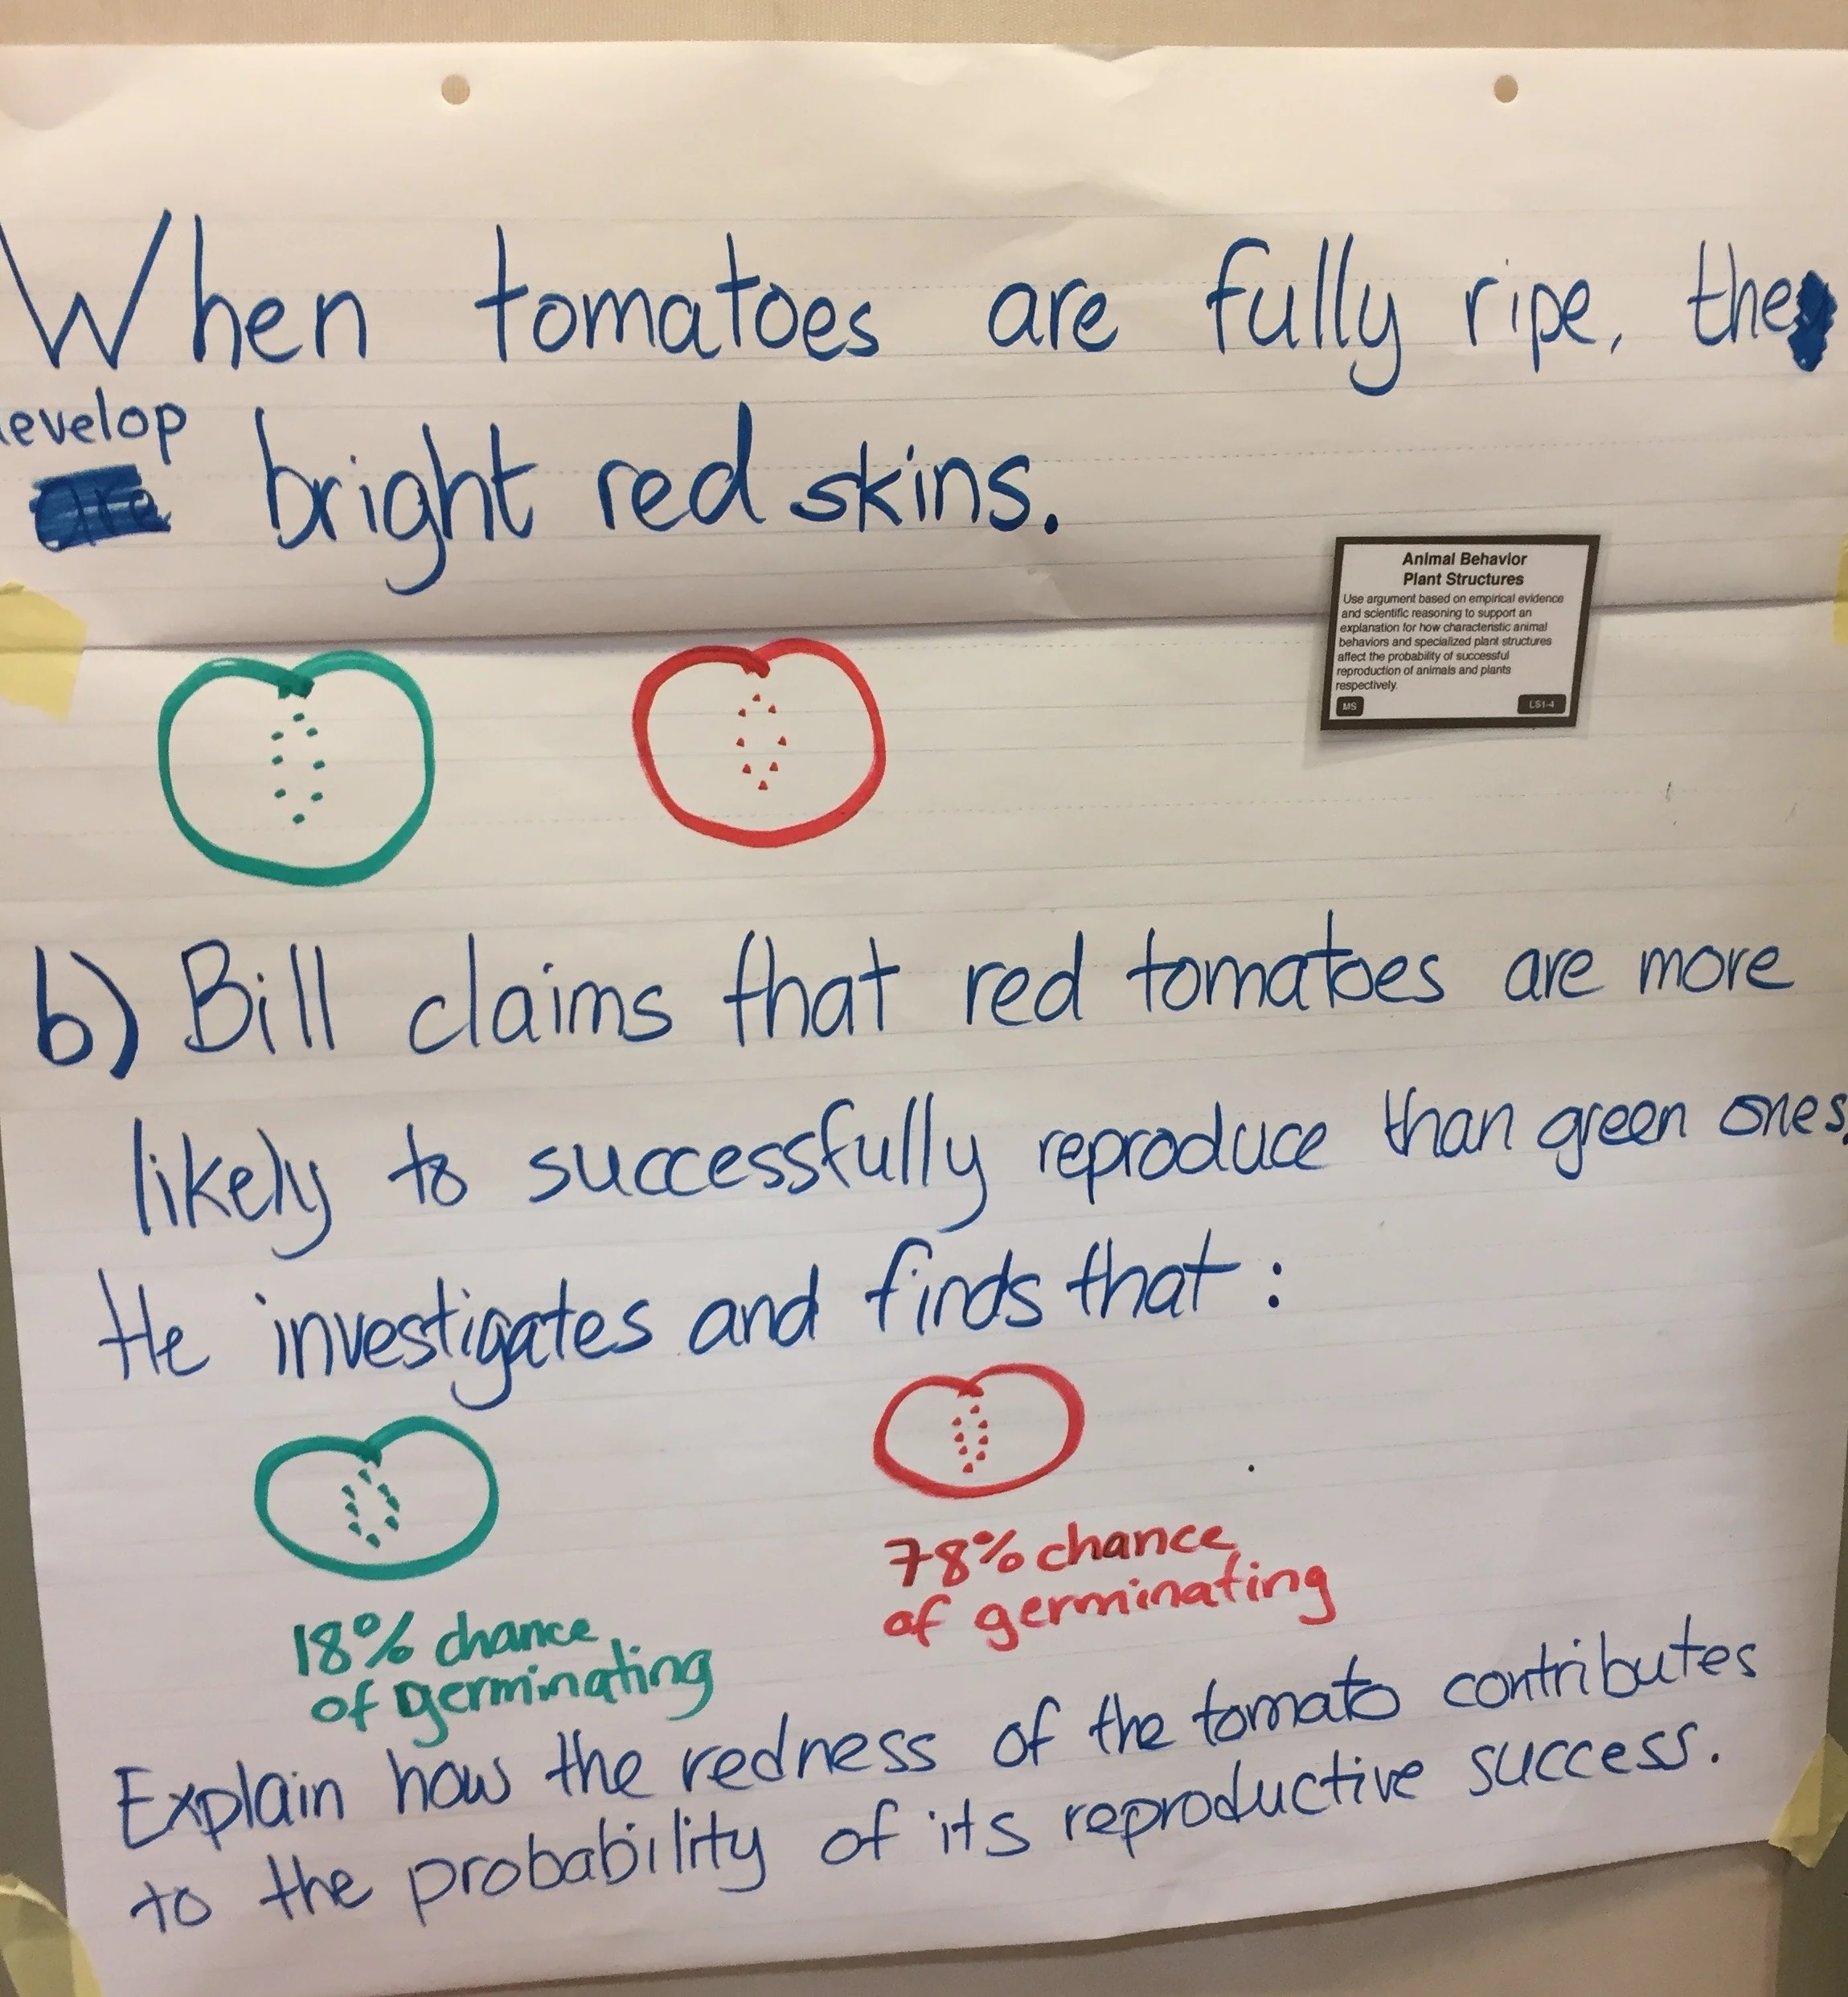 When tomatoes are fully ripe, they
evelop
are bright red skins.
Animal Behavior
Plant Structures
Use argument based on empirical evidence
and scientific reasoning to support an
explanation for how characteristic animal
behaviors and specialized plant structures
affect the probability of successful
reproduction of animals and plants
respectively.
MS LS1-4
b) Bill claims that red tomatoes are more
likely to successfully reproduce than green ones.
He investigates and finds that:
18% chance
of germinating
78% chance
of germinating
Explain how the redness of the tomato contributes
to the probability of its reproductive success.